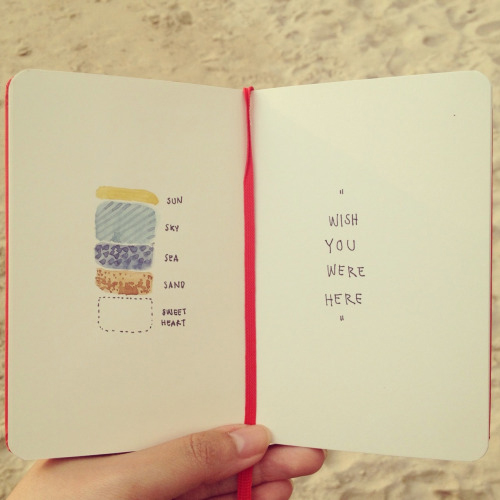 SUN
SKY
SEA
SAND
SWEET
HEART
"
WISH
YOU
WERE
HERE
"